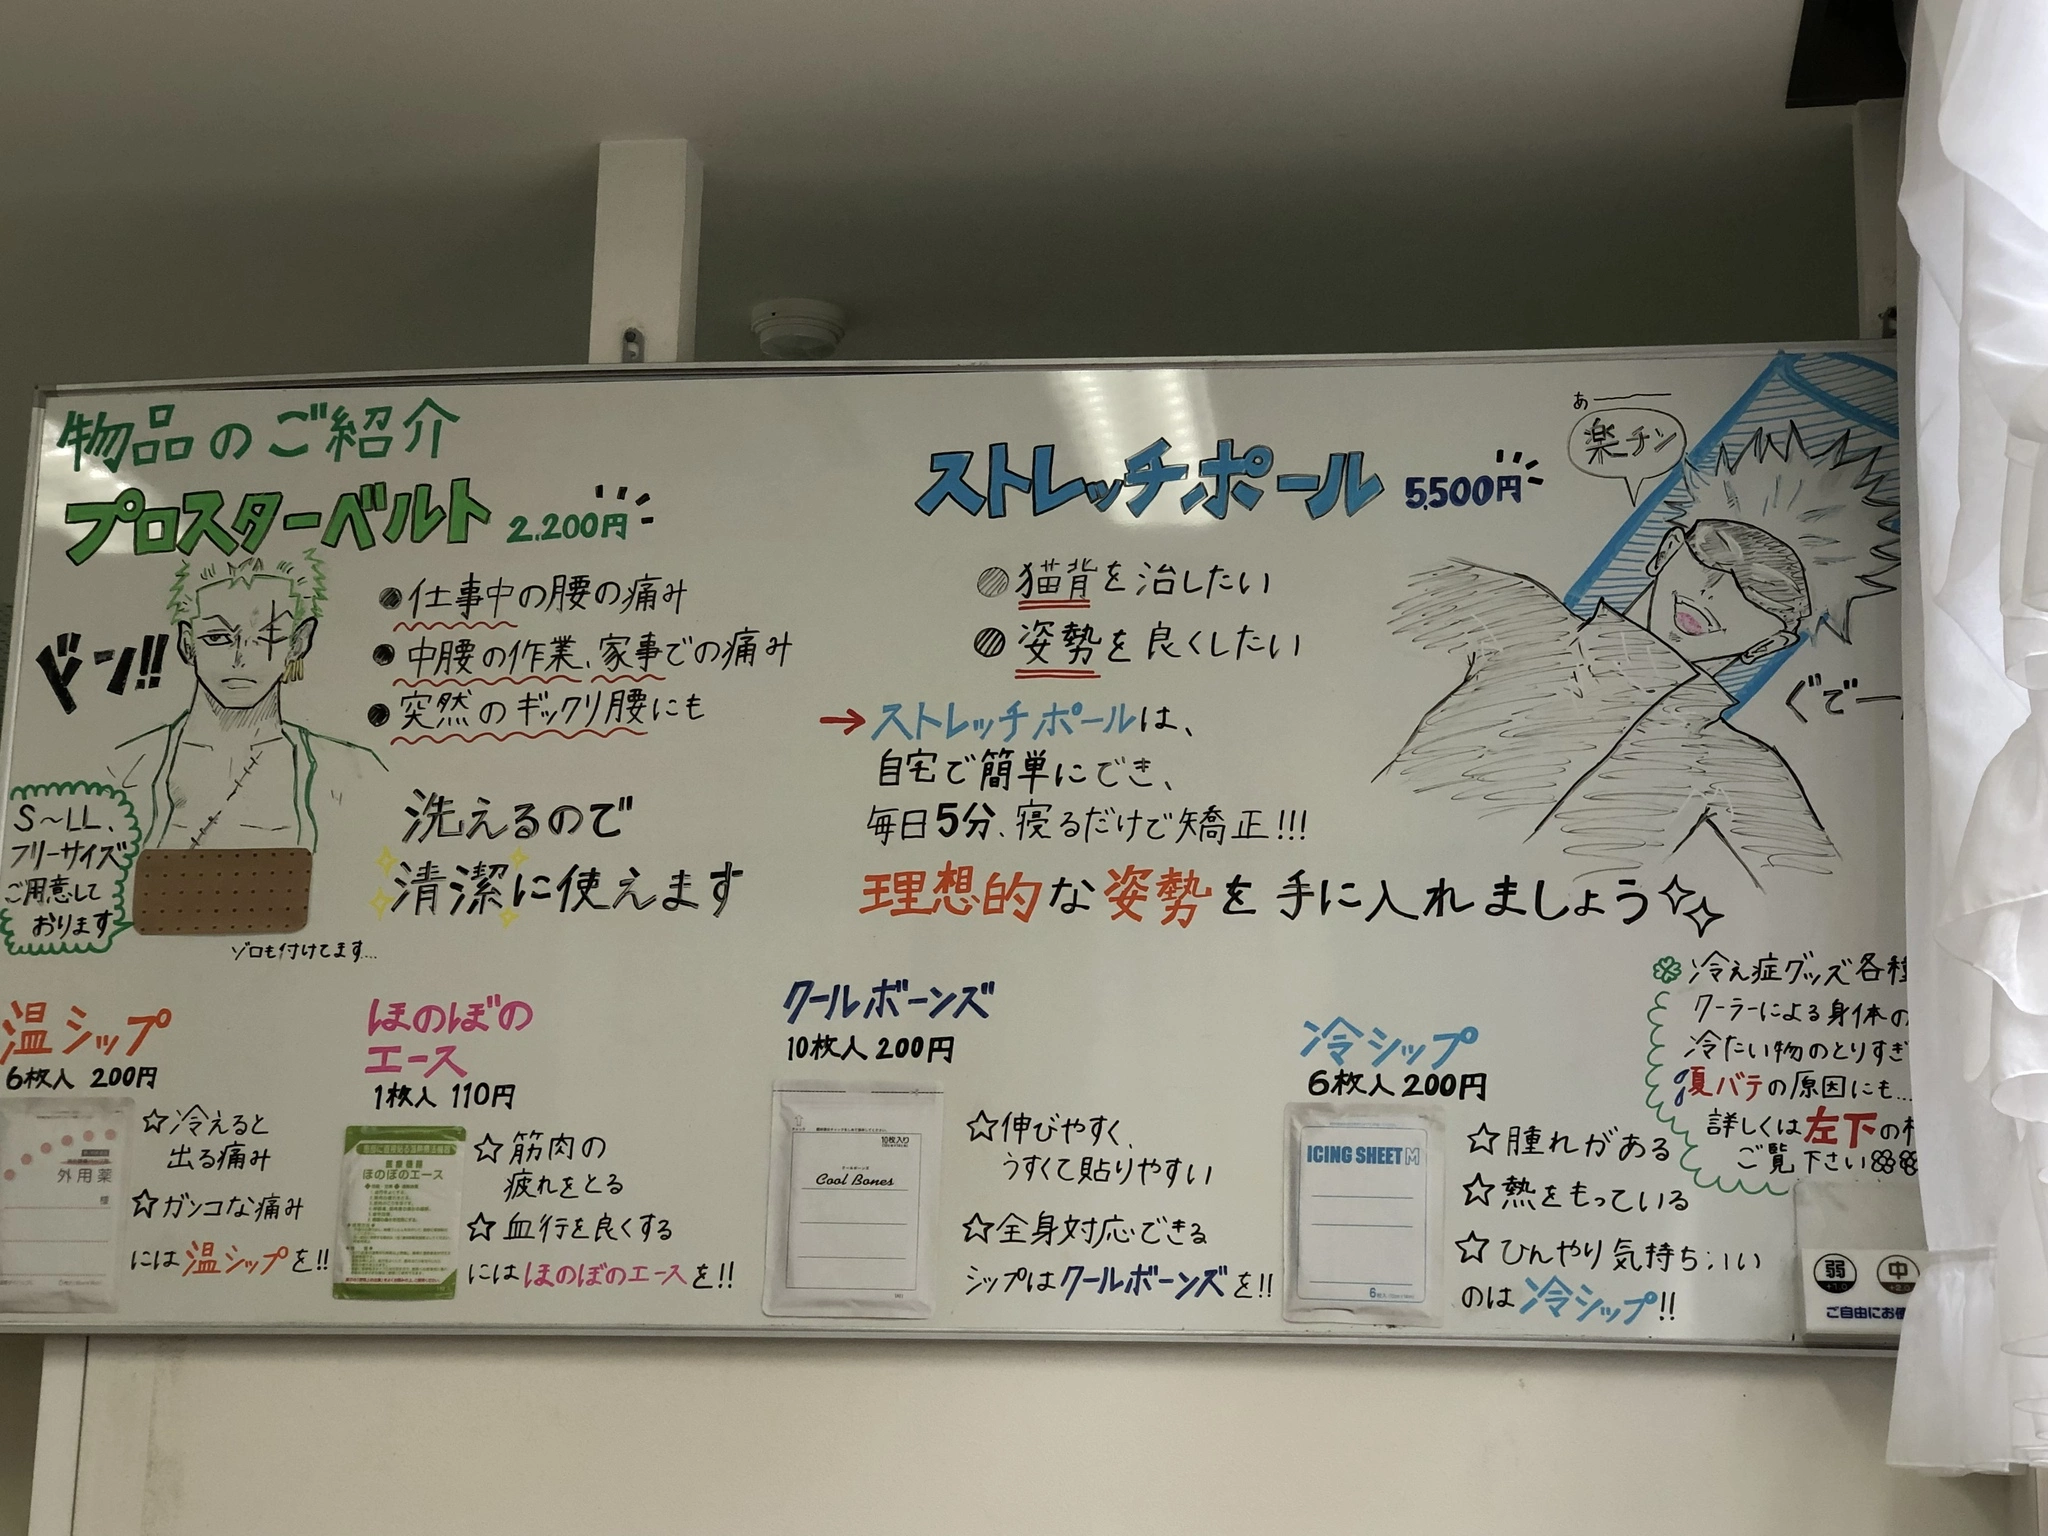 物品のご紹介
プロスターベルト 2,200円
ドン!!
●仕事中の腰の痛み
●中腰の作業、家事での痛み
●突然のギックリ腰にも
洗えるので
清潔に使えます
S〜LL、
フリーサイズ
ご用意して
おります
ゾロも付けてます…
ストレッチポール 5,500円
●猫背を治したい
●姿勢を良くしたい
→ストレッチポールは、
自宅で簡単にでき、
毎日5分、寝るだけで矯正!!!
理想的な姿勢を手に入れましょう
あ――
楽チン
ぐでー
温シップ
6枚入 200円
外用薬
様
☆冷えると
出る痛み
☆ガンコな痛み
には温シップを!!
ほのぼの
エース
1枚入 110円
医療機器
ほのぼのエース
☆筋肉の
疲れをとる
☆血行を良くする
にはほのぼのエースを!!
クールボーンズ
10枚入 200円
10枚入り
クールボーンズ
Cool Bones
☆伸びやすく、
うすくて貼りやすい
☆全身対応できる
シップはクールボーンズを!!
冷シップ
6枚入 200円
ICING SHEET M
☆腫れがある
☆熱をもっている
☆ひんやり気持ちいい
のは冷シップ!!
冷え症グッズ各種
クーラーによる身体の
冷たい物のとりすぎ
夏バテの原因にも…
詳しくは左下の
ご覧下さい
弱
+1.0
中
+2.0
ご自由にお